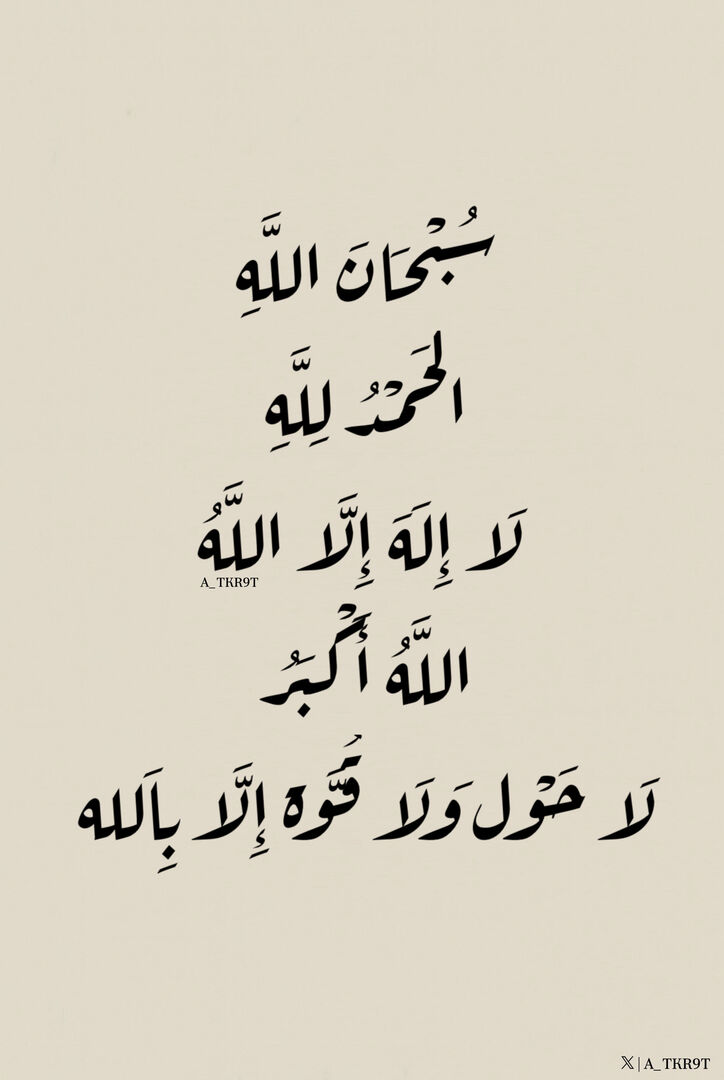 سُبْحَانَ اللَّهِ
الحَمْدُ لِلَّهِ
لَا إِلَهَ إِلَّا اللَّهُ
A_TKR9T
اللَّهُ أَكْبَرُ
لَا حَوْل وَلَا قُوَّة إِلَّا بِاَلله
𝕏 | A_TKR9T